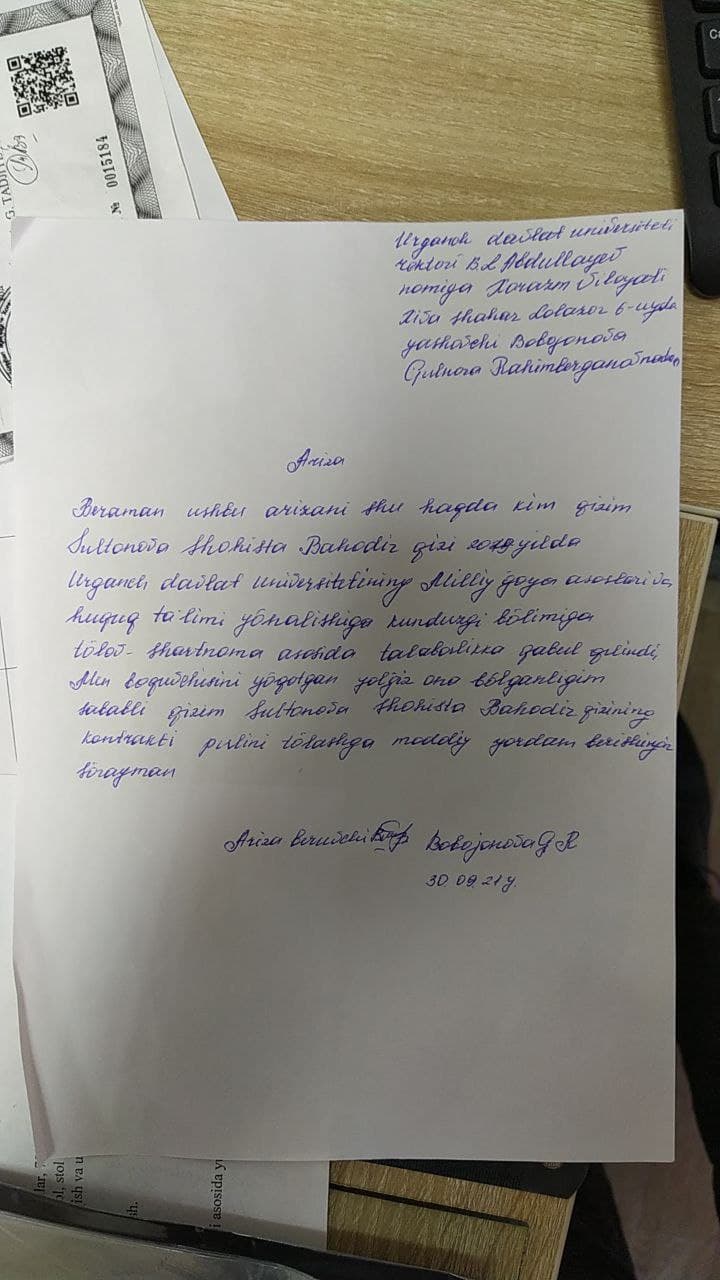 G. TADJIYEV
№ 0015184
Urganch davlat universiteti
rektori B.L Abdullayev
nomiga Xorazm viloyati
Xiva shahar Lolazor 6-uyda
yashovchi Bobojonova
Gulnora Rahimberganovnadan
Ariza
Beraman ushbu arizani shu haqda kim qizim
Sultonova Shohista Bahodir qizi 2019 yilda
Urganch davlat universitetining Milliy g'oya asoslari va
huquq ta'limi yo'nalishiga kunduzgi bo'limiga
to'lov-shartnoma asosida talabalikka qabul qilindi,
Men boquvchisini yo'qotgan yolg'iz ona bo'lganligim
sababli qizim Sultonova Shohista Bahodir qizining
kontrakti pulini to'lashga moddiy yordam berishingiz
so'rayman
Ariza beruvchi Bobojonova G R
30.09.21 y.
lar,
ol, stol
ish va u
sh.
i asosida yu